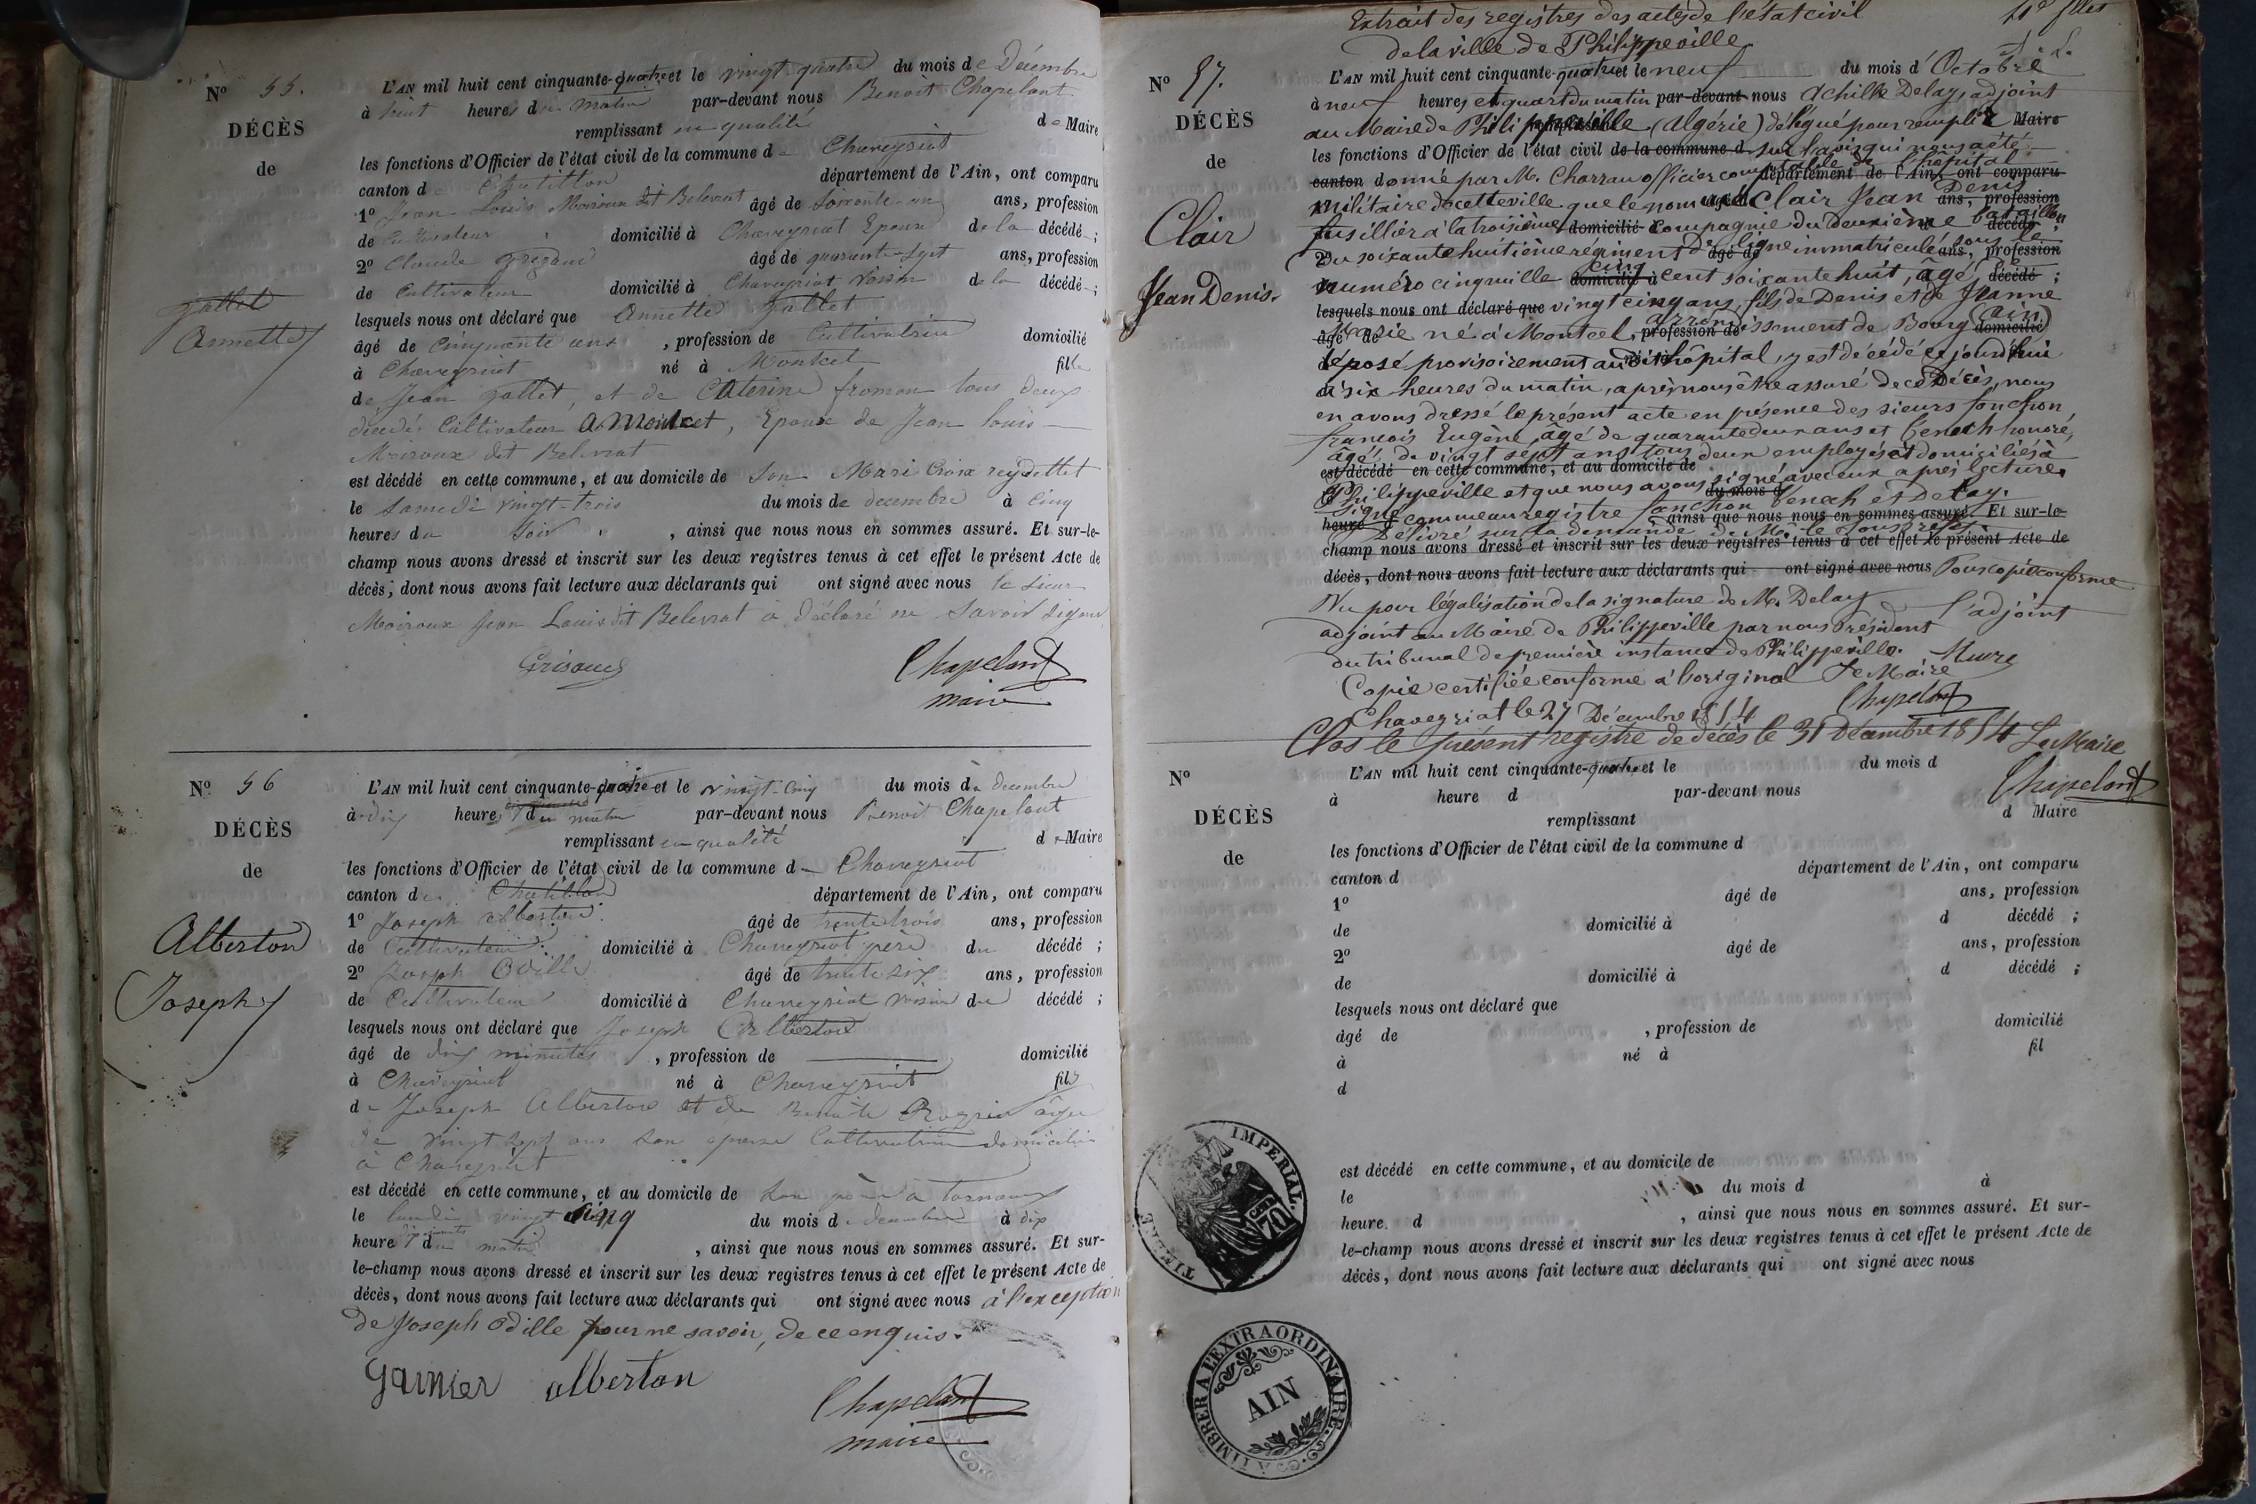 N° 55.
DÉCÈS
de
Gallet
Annette
L'AN mil huit cent cinquante-quatre et le vingt quatre du mois de Décembre
à huit heures du matin par-devant nous Benoit Chapelant
remplissant en qualité de Maire
les fonctions d'Officier de l'état civil de la commune de Chaveyriat
canton de Chatillon département de l'Ain, ont comparu
1° Jean Louis Moiroux dit Belevrat âgé de soixante un ans, profession
de Cultivateur domicilié à Chaveyriat Epoux de la décédé ;
2° Claude âgé de quarante-sept ans, profession
de Cultivateur domicilié à Chaveyriat voisin de la décédé ;
lesquels nous ont déclaré que Annette Gallet
âgé de cinquante ans , profession de Cultivatrice domicilié
à Chaveyriat né à Montcet fille
de Jean Gallet, et de Caterine froman tous deux
décédés Cultivateur à Montcet, Epouse de Jean Louis
Moiroux dit Belevrat
est décédé en cette commune, et au domicile de son Mari
le Samedi vingt-trois du mois de decembre à cinq
heures du soir , ainsi que nous nous en sommes assuré. Et sur-le-
champ nous avons dressé et inscrit sur les deux registres tenus à cet effet le présent Acte de
décès; dont nous avons fait lecture aux déclarants qui ont signé avec nous le sieur
Moiroux Jean Louis dit Belevrat a déclaré ne savoir signer
Chapelant
maire
N° 56
DÉCÈS
de
Alberton
Joseph
L'AN mil huit cent cinquante-quatre et le vingt-cinq du mois de decembre
à dix heures du matin par-devant nous Benoit Chapelant
remplissant en qualité de Maire
les fonctions d'Officier de l'état civil de la commune de Chaveyriat
canton de Chatillon département de l'Ain, ont comparu
1° Joseph Alberton âgé de trente trois ans, profession
de Cultivateur domicilié à Chaveyriat père du décédé ;
2° Joseph Odille âgé de trente six ans, profession
de Cultivateur domicilié à Chaveyriat voisin du décédé ;
lesquels nous ont déclaré que Joseph Alberton
âgé de dix minutes , profession de domicilié
à Chaveyriat né à Chaveyriat fils
de Joseph Alberton et de Benoite âgée
de vingt sept ans son épouse Cultivatrice domiciliée
à Chaveyriat
est décédé en cette commune, et au domicile de son père à
le lundi vingt cinq du mois de decembre à dix
heures du matin , ainsi que nous nous en sommes assuré. Et sur-
le-champ nous avons dressé et inscrit sur les deux registres tenus à cet effet le présent Acte de
décès, dont nous avons fait lecture aux déclarants qui ont signé avec nous à l'exception
de Joseph Odille pour ne savoir, de ce enquis.
garnier alberton
Chapelant
maire
Extrait des registres des actes de l'état civil
de la ville de Philippeville
N° 57.
DÉCÈS
de
Clair
Jean Denis.
L'AN mil huit cent cinquante-quatre et le neuf du mois d'Octobre
à neuf heures et quart du matin par-devant nous Achille Delay adjoint
au Maire de Philippeville (Algérie) délégué pour remplir Maire
les fonctions d'Officier de l'état civil de la commune d sur l'avis qui nous a été
canton donné par M. Charrau officier comptable de l'hôpital département de l'Ain, ont comparu
militaire de cette ville que le nommé Clair Jean Denis ans, profession
fusillier à la troisième domicilié compagnie du deuxième bataillon décédé
2° Du soixante huitième régiment de ligne immatriculé sous le âgé de ans, profession
numéro cinq mille cinq domicilié à cent soixante huit, âgé de décédé ;
lesquels nous ont déclaré que vingt cinq ans, fils de Denis et de Jeanne
âgé de Marie né à Montcel, arrondissement profession de de Bourg (ain) domicilié
déposé provisoirement audit hôpital, y est décédé ce jourd'hui
à six heures du matin, après nous être assuré de ce Décès, nous
en avons dressé le présent acte en présence des sieurs fonchon
françois Eugène, âgé de quarante deux ans et Venech honoré,
âgé de vingt sept ans tous deux employés et domiciliés à
est décédé en cette commune, et au domicile de
Philippeville et que nous avons signé avec eux après lecture. du mois d
Signé comme au registre fonchon Venech et Delay.
heure d ainsi que nous nous en sommes assuré. Et sur-le-
Délivré sur la demande de M. le Sous préfet
champ nous avons dressé et inscrit sur les deux registres tenus à cet effet le présent Acte de
décès, dont nous avons fait lecture aux déclarants qui ont signé avec nous Pour copie conforme
Vu pour légalisation de la signature de M. Delay l'adjoint
adjoint au Maire de Philippeville par nous Président
du tribunal de première instance de Philippeville.
Copie certifiée conforme à l'original Le Maire
Chaveyriat le 27 Décembre 1854 Chapelant
Clos le présent registre de décès le 31 Décembre 1854 Le Maire
Chapelant
N°
DÉCÈS
de
L'AN mil huit cent cinquante-quatre et le du mois d
à heure d par-devant nous
remplissant d Maire
les fonctions d'Officier de l'état civil de la commune d
canton d département de l'Ain, ont comparu
1° âgé de ans, profession
de domicilié à d décédé ;
2° âgé de ans, profession
de domicilié à d décédé ;
lesquels nous ont déclaré que
âgé de , profession de domicilié
à né à fil
d
est décédé en cette commune, et au domicile de
le du mois d à
heure d , ainsi que nous nous en sommes assuré. Et sur-
le-champ nous avons dressé et inscrit sur les deux registres tenus à cet effet le présent Acte de
décès, dont nous avons fait lecture aux déclarants qui ont signé avec nous
TIMBRE IMPERIAL.
70
A TIMBRER A L'EXTRAORDINAIRE.
AIN